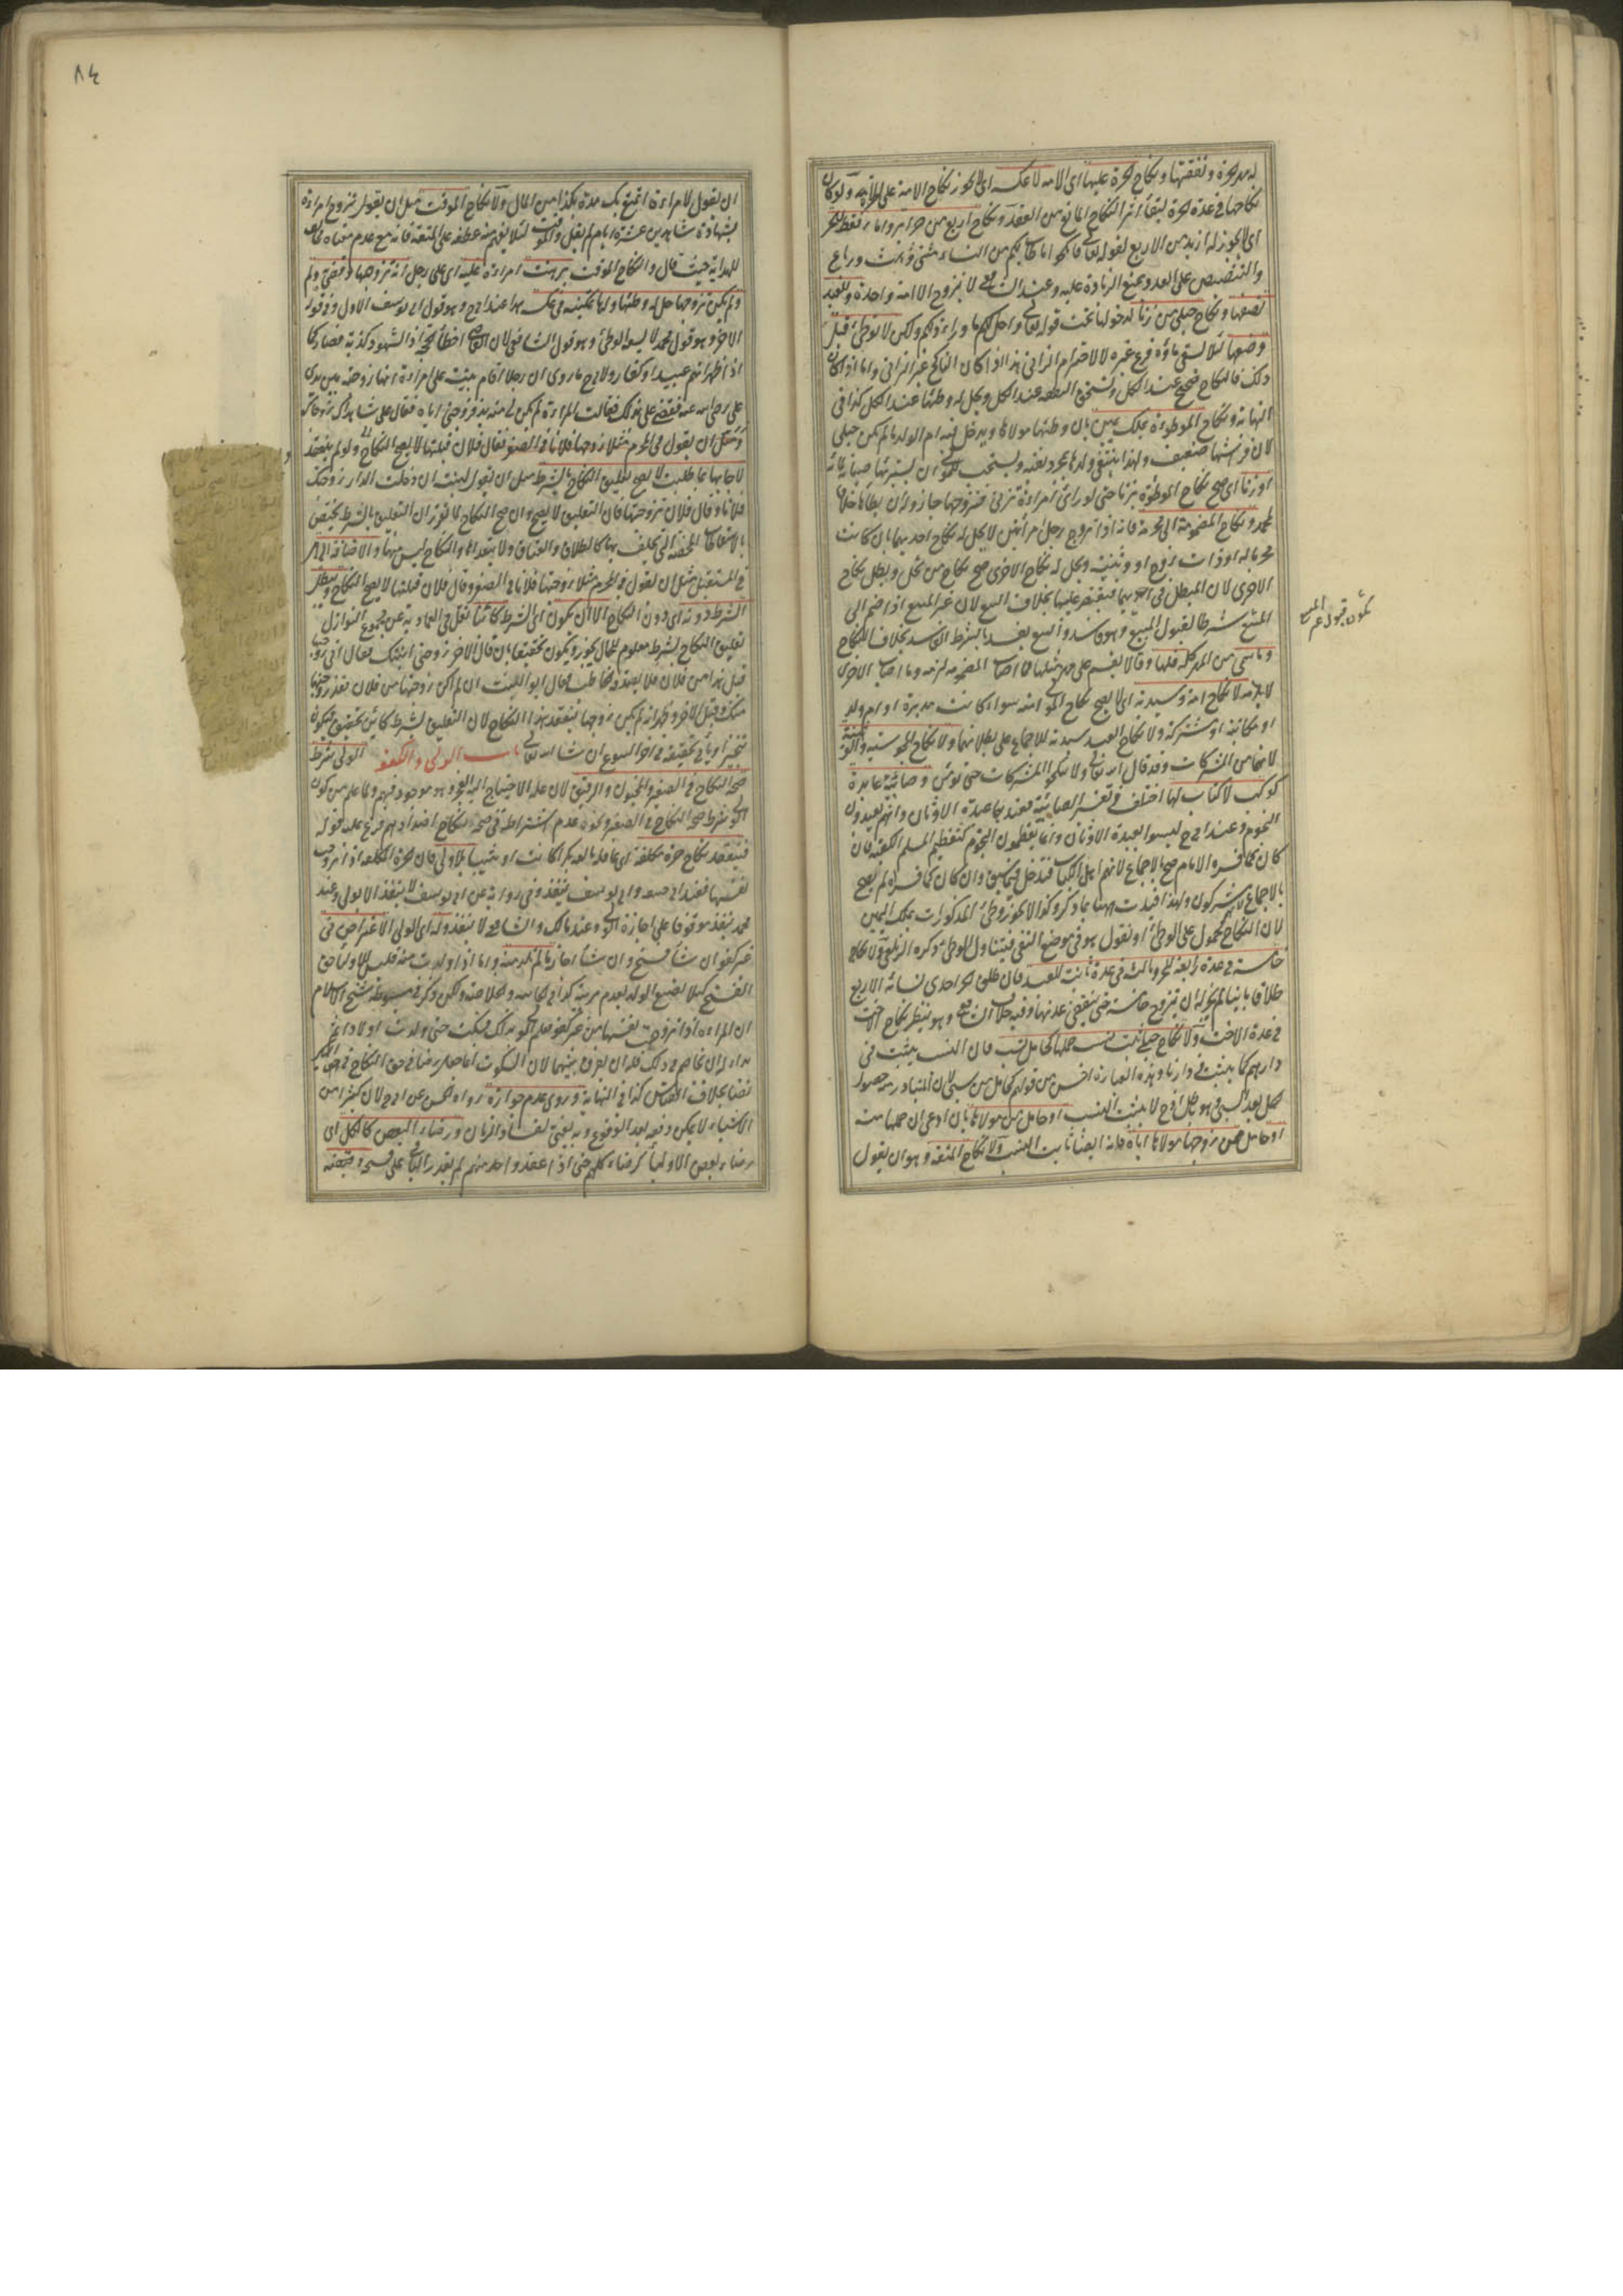 له مهر الحرة ونفقتها ونكاح الحرة عليها اى الامة لا عكسه اى لا يجوز نكاح الامة على الحرة ولو كان
نكاحها فى عدة الحرة لبقاء اثر النكاح المانع من العقد ونكاح اربع من حرائر واماء فقط للحر
اى لا يجوز له ازيد من الاربع لقوله تعالى فانكحوا ما طاب لكم من النساء مثنى وثلث ورباع
والتنصيص على العدد يمنع الزيادة عليه وعند الشافعى لا يتزوج الا امة واحدة وللعبد
نصفها ونكاح حبلى من زنا لدخولها تحت قوله تعالى واحل لكم ما وراء ذلكم ولكن لا توطئ قبل
وضعها لئلا يسقى ماؤه زرع غيره لا لاحترام الزانى هذا اذا كان الناكح غير الزانى واما اذا كان
ذلك فالنكاح صحيح عند الكل وتستحق النفقة عند الكل ويحل له وطئها عند الكل كذا فى
النهاية ونكاح الموطوءة بملك يمين بان وطئها مولاها ويدخل فيه ام الولد ما لم تكن حبلى
لان فراشها ضعيف ولهذا ينتفى ولدها بمجرد نفيه ويستحب للمولى ان يستبرئها صيانة لمائه
او زنا اى صح نكاح الموطوءة بزنا حتى لو رأى امراة تزنى فتزوجها جاز وله ان يطأها خلافا
لمحمد ونكاح المضمومة الى محرمة فانه اذا تزوج رجل امرأتين لا يحل له نكاح احديهما بان كانت
محرما له او ذات زوج او وثنية ويحل له نكاح الاخرى صح نكاح من تحل وبطل نكاح
الاخرى لان المبطل فى احديهما فيقتصر عليها بخلاف البيع لان غير المبيع اذا ضم الى
المبيع شرطا لقبول المبيع وهو فاسد والبيع يفسد بالشرط الفاسد بخلاف النكاح
وما سمى من المهر كله فلها وقالا يقسم على مهر مثلهما فما اصاب المضمومة لزمه وما اصاب الاخرى
لا يلزمه لا نكاح امته وسيدته اى لا يصح نكاح المولى امته سواء كانت مدبرة او ام ولد
او مكاتبة او مشتركة ولا نكاح العبد سيدته للاجماع على بطلانهما ولا نكاح المجوسية والوثنية
لانهما من المشركات وقد قال الله تعالى ولا تنكحوا المشركات حتى يؤمن وصابئية عابدة
كوكب لا كتاب لها اختلف فى تفسير الصابئية فعندهما عبدة الاوثان وانهم يعبدون
النجوم وعند ابى ح ليسوا بعبدة الاوثان وانما يعظمون النجوم كتعظيم المسلم الكعبة فان
كان كما فسره الامام صح بالاجماع لانهم اهل الكتاب فتدخل فيما سبق وان كان كما فسراه لم يصح
بالاجماع لانهم مشركون ولهذا قيدت ههنا بما ذكر وكذا لا يجوز وطئ المذكورات بملك اليمين
لان النكاح محمول على الوطئ او نقول هو فى موضع النفى فيتناول الوطئ ذكره الزيلعى ولا نكاح
خامسة فى عدة رابعة للحر وثالثة فى عدة ثانية للعبد فان طلق الحر احدى نسائه الاربع
طلاقا باينا لم يجز له ان يتزوج خامسة حتى تنقضى عدتها وفيه خلاف الشافعى وهو نظير نكاح الاخت
فى عدة الاخت ولا نكاح حبلى ثبت نسب حملها كحامل سبيت فان النسب يثبت فى
دارهم كما يثبت فى دارنا وهذه العبارة احسن من قولهم كحامل من سبى لان المتبادر منه حصول
حمل بعد السبى وهو حامل لا يثبت النسب او حامل من مولاها بان ادعى ان حملها منه
او حامل ممن زوجها مولاها اياه فانه ايضا ثابت النسب ولا نكاح المتعة وهو ان يقول
يكون قبول غير المبيع
٨٤
ان يقول لامراءة اتمتع بك مدة بكذا من المال ولا نكاح الموقت مثل ان يقول تزوج امراءة
بشهادة شاهدين عشرة ايام لم يقل والموقت لئلا يفهم منه عطفه على المتعة فانه مع عدم معناه مخالف
للهداية حيث قال والنكاح الموقت برهنت امراءة عليه اى على رجل انه تزوجها وقضى ولم
ولم يكن تزوجها حل له وطئها ولها تمكينه فى عكسه هذا عند ابى ح وهو قول ابى يوسف الاول وفى قوله
الاخر وهو قول محمد لا يسع الوطئ وهو قول الشافعى لان القاضى اخطأ الحجة اذ الشهود كذبة فصار كما
اذا ظهر انهم عبيد او كفار ولابى ح ما روى ان رجلا اقام بينة على امراءة انها زوجته بين يدى
على رضى الله عنه فقضى على بذلك فقالت المراءة لم يكن لى منه بد فزوجنى اياه فقال على شاهداك زوجاك
ومثل ان يقول فى المحرم مثلا زوجتها فلانا فى الصفر فقال فلان قبلتها لا يصح النكاح ولو لم ينعقد
لاجابها بما طلبت لا يصح تعليق النكاح بالشرط مثل ان يقول لبنت ان دخلت الدار زوجتك
فلانا وقال فلان تزوجتها فان التعليق لا يصح وان صح النكاح لما تقرر ان التعليق بالشرط يختص
بالاسقاطات المحضة التى يحلف بها كالطلاق والعتاق ولا يتعداها والنكاح ليس منها والاضافة الى امر
فى المستقبل مثل ان يقول فى المحرم مثلا زوجتها فلانا فى الصفر وقال فلان قبلتها لا يصح النكاح ويبطل
الشرط دونه اى دون النكاح الا ان يكون اى الشرط كائنا نقل فى العمادية عن مجموع النوازل
تعليق النكاح بشرط معلوم للحال يجوز ويكون تحقيقا بان قال الاخر زوجنى ابنتك فقال انى زوجتها
قبل هذا من فلان فلم يصدقه الخاطب فقال ابو البنت ان لم اكن زوجتها من فلان فقد زوجتها
منك وقبل الاخر وظهر انه لم يكن زوجها ينعقد هذا النكاح لان التعليق بشرط كائن تحقيق فيكون
تنجيزا ويأتى تحقيقه فى اخر البيوع ان شاء الله تعالى باب الولى والكفو الولى شرط
صحة النكاح فى الصغير والمجنون والرقيق لان علة الاحتياج اليه العجز وهو موجود فيهم ولما علم من كون
الولى شرط صحة النكاح فى الصغير ونحوه عدم اشتراطه فى صحة النكاح اضدادهم فرع عليه قوله
فينعقد نكاح حرة مكلفة اى عاقلة بالغة بكرا كانت او ثيبا بلا ولى فان الحرة المكلفة اذا زوجت
نفسها فعند ابى حنيفة وابى يوسف ينفذ وفى رواية عن ابى يوسف لا ينفذ الا بولى وعند
محمد ينعقد موقوفا على اجازة الولى وعند مالك والشافعى لا ينعقد وله اى للولى الاعتراض فى
غير كفو ان شاء فسخ وان شاء اجاز ما لم تلد منه واما اذا ولدت منه فليس للاولياء حق
الفسخ كيلا يضيع الولد بعدم مربيه كذا فى الخانية والخلاصة ولكن ذكر فى مبسوط شيخ الاسلام
ان المراءة اذا تزوجت نفسها من غير كفو فعلم الولى بذلك فسكت حتى ولدت اولادا ثم
بدا له ان يخاصم فى ذلك فله ان يفرق بينهما لان السكوت انما جعل رضا فى حق النكاح فى حق البكر
نصا بخلاف القياس كذا فى النهاية وروى عدم جوازه رواه الحسن عن ابى ح لان كثيرا من
الاشياء لا يمكن دفعه بعد الوقوع وبه يفتى لفساد الزمان ورضاء البعض كالكل اى
رضاء بعض الاولياء كرضاء كلهم حتى اذا عقد واحد منهم لم يقدر الباقى على فسخه وقبضه